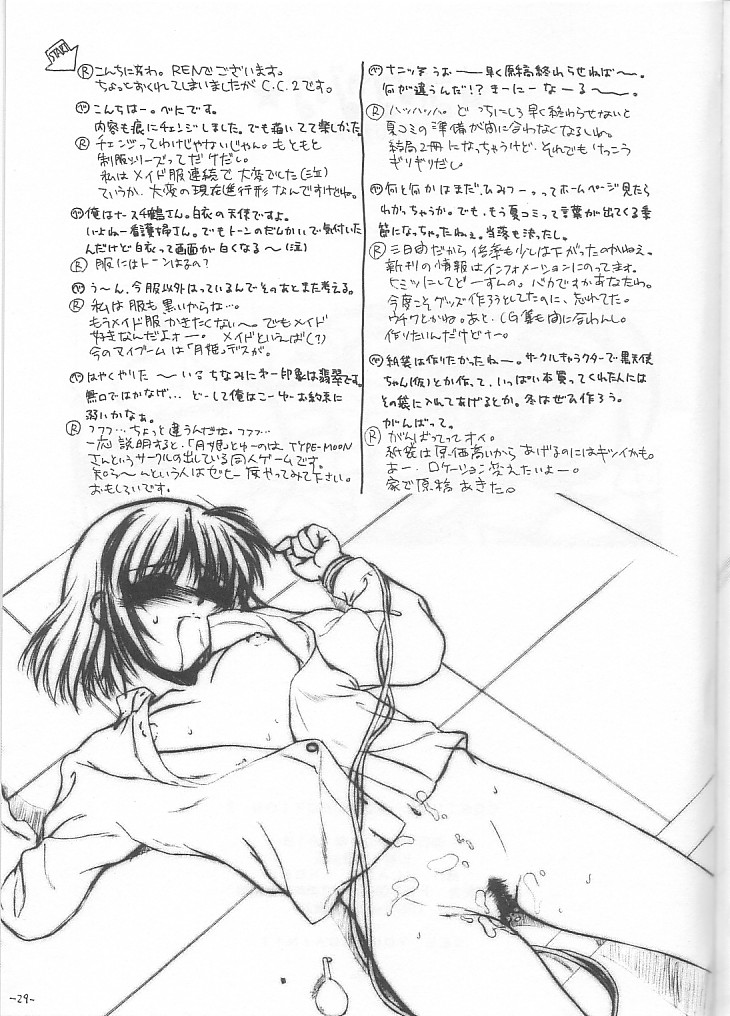 START
Ⓡこんちにわ。RENでございます。
ちょっとおくれてしまいましたが C.C.2です。
こんちはー。べにです。
内容も痕にチェンジしました。でも描いてて楽しかった。
Ⓡチェンジってわけじゃないじゃん。もともと
制服シリーズってだけだい。
私はメイド服連続で大変でした(泣)
ていうか、大変の現在進行形なんですけどね。
俺はナース千鶴さん。白衣の天使ですよ。
いよねー看護婦さん。でもトーンのだんかいで気付いた
んだけど白衣って画面が白くなる〜(泣)
Ⓡ服にはトーンはるの?
う〜ん、今服以外はっているんでそのあとまた考える。
Ⓡ私は服も黒いからな…。
もうメイド服かきたくない〜。でもメイド
好きなんだよォー。メイドといえば(?)
今のマイブームは「月姫」デスが。
はやくやりた〜いる ちなみに第一印象は翡翠です。
無口ではかなげ… どーして俺はこーゆーお約束に
弱いかなぁ。
Ⓡフフフ…ちょっと違うんだな。フフフ…
一応説明すると、「月姫」とゆーのは TYPE-MOON
さんというサークルの出している同人ゲームです。
知ら〜んという人はゼッヒ一度やってみて下さい。
おもしろいです。
ナニッ すうお——早く原稿終わらせねば〜〜。
何が違うんだ!? きーにーなーるー〜〜。
Ⓡハッハッハ。どっちにしろ早く終わらせないと
夏コミの準備が間に合わなくなるしね。
結局2冊になっちゃうけど、それでもけっこう
ギリギリだし
何と何かはまだひみつー。ってホームページ見たら
わかっちゃうか。でも、もう夏コミって言葉が出てくる季
節になっちゃったねぇ。当落も決ったし。
Ⓡ三日間だから倍率も少しは下がったのかねえ。
新刊の情報はインフォメーションにのってます。
ヒミツにしてどーすんの。バカですかあなたわ。
今度こそグッズ作ろうとしてたのに、忘れてた。
ウチワとかね。あと、CG集も間に合わんし。
作りたいんだけどナー。
紙袋は作りたかったねー。サークルキャラクターで黒天使
ちゃん(仮)とか作って、いっぱい本買ってくれた人には
その袋に入れてあげるとか。冬はぜひ作ろう。
がんばって。
Ⓡがんばってってオイ。
紙袋は原価高いからあげるのにはキツイかも。
あー、ロケーション変えたいよー。
家で原稿あきた。
-29-